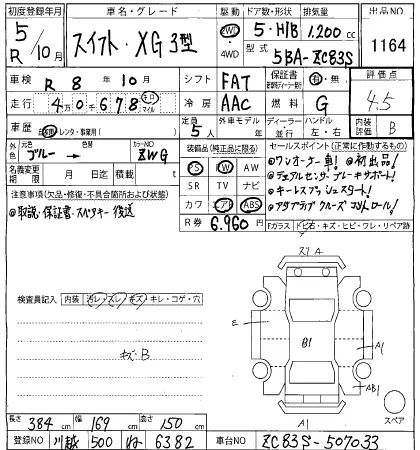 初度登録年月 車名・グレード 駆動 ドア数・形状 排気量 出品NO
5 R/10月 スイフト・XG 3型 2WD 4WD 5・H/B 1,200cc 1164
型式 5BA-ZC83S
車検 R 8年 10月 シフト FAT 保証書 有・無 評価点
走行 4万0千678 キロ マイル 冷房 AAC 燃料 G 4.5
車歴 自家用・レンタ・事業用( ) 定員 5人 外車モデル 年 ディーラー 並行 ハンドル 左・右 内装評価 B
外色 元色 ブルー→ 替 カラーNO ZWG 装備品(純正品に限る) セールスポイント(正常に作動するもの)
名義変更期限 月 日迄 積載 t PS PW AW
SR TV ナビ
カワ エアB ABS
R券 6,960円
@ワンオーナー車! @初出品!
@デュアルセンサーブレーキサポート!
@キーレスプッシュスタート!
@アダプティブクルーズコントロール!
注意事項(欠品・修復・不具合箇所および状態)
@取説・保証書・スペアキー 後送
Fガラス トビ石・キズ・ヒビ・ワレ・リペア跡
検査員記入 内装 汚レ・スレ・キズ・キレ・コゲ・穴
キズ・B
スリA
E
B1
A1
AB1
A1
スペア
長さ 384cm 幅 169cm 高さ 150cm
登録NO 川越 500 6382 車台NO ZC83S-507033